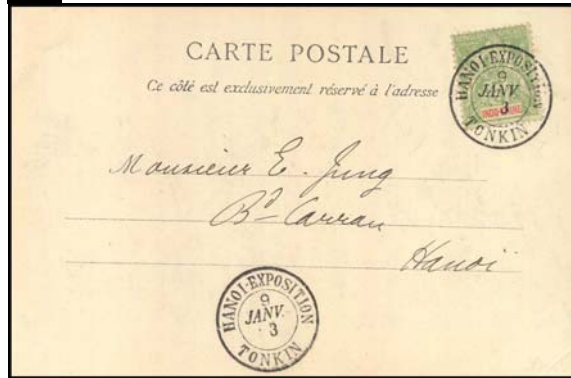 CARTE POSTALE
Ce côté est exclusivement réservé à l'adresse
HANOI-EXPOSITION
9
JANV.
3
TONKIN
INDO-CHINE
Monsieur E. Jung
Bd Carrau
Hanoi
HANOI-EXPOSITION
9
JANV.
3
TONKIN